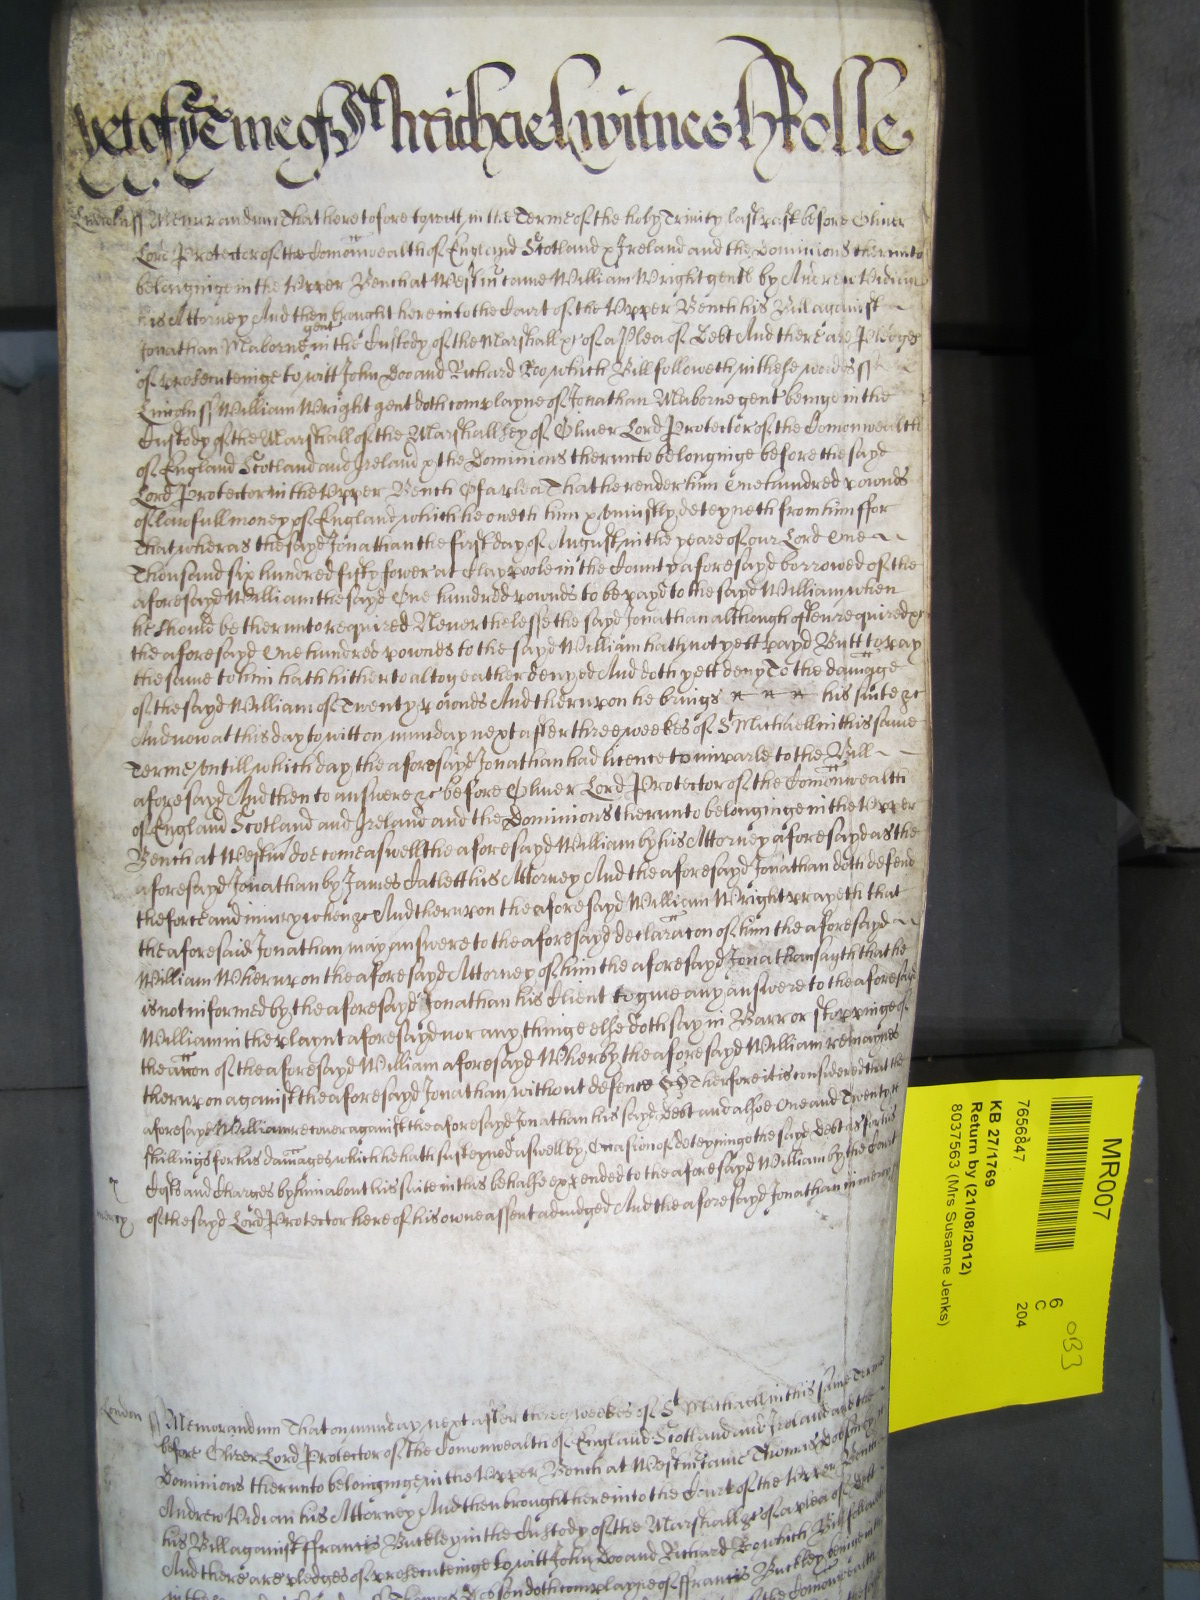 yet of ye Terme of St Michael witnes H Rolle
Lincoln ss Memorandum That heretofore to witt, in the Terme of the holy Trinity last past before Oliver
Lord Protector of the Comonwealth of England Scotland & Ireland and the Dominions therunto
belonginge in the Upper Bench at Westm came William Wright gent by Andrew Vidian
his Attorney And then brought here into the Court of the Upper Bench his Bill against
Jonathan Maborne gent in the Custody of the Marshall &c of a Plea of Debt And there are Pledges
of prosecuteinge to witt John Doo and Richard Roo which Bill followeth in these words ss
Lincoln ss William Wright gent doth complayne of Jonathan Maborne gent beinge in the
Custody of the Marshall of the Marshallsey of Oliver Lord Protector of the Comonwealth
of England Scotland and Ireland & the Dominions therunto belonginge before the sayd
Lord Protector in the Upper Bench Of a plea That he render him One hundred pownds
of lawfull money of England, which he oweth him & uniustly deteyneth from him ffor
That wheras the sayd Jonathan the first day of August, in the yeare of our Lord One
Thousand six hundred fifty fower at Claypoole in the County aforesayd borrowed of the
aforesayd William the sayd One hundred pownds to be payd to the sayd William when
he should be therunto required Neverthelesse the sayd Jonathan although often required &c
the aforesayd One hundred pownds to the sayd William hath not yett payd Butt to pay
the same to him hath hitherto altogeather denyed And doth yett deny To the damage
of the sayd William of Twenty pownds And therupon he brings his suite &c
And now at this day to witt on munday next after three weekes of St Michaell in this same
Terme, untill which day the aforesayd Jonathan had licence to imparle to the Bill
aforesayd And then to answere &c before Oliver Lord Protector of the Comonwealth
of England Scotland and Ireland and the Dominions therunto belonginge in the Upper
Bench at Westm doe come aswell the aforesayd William by his Attorney aforesayd as the
aforesayd Jonathan by James Catlett his Attorney And the aforesayd Jonathan doth defend
the force and iniury when &c And therupon the aforesayd William Wright prayeth that
the aforesaid Jonathan may answere to the aforesayd declaracon of him the aforesayd
William Wherupon the aforesayd Attorney of him the aforesayd Jonathan sayth that he
is not informed by the aforesayd Jonathan his Client to give any answere to the aforesayd
William in the playnt aforesayd nor any thinge else doth say in Barr or stoppinge of
the accon of the aforesayd William aforesayd Wherby the aforesayd William remaynes
therupon against the aforesayd Jonathan without defence &c Therfore it is considered that the
aforesayd William recover against the aforesayd Jonathan his sayd Debt and alsoe One and Twenty
shillings for his damages, which he hath susteyned aswell by Occasion of deteyninge the sayd Debt as for his
Costs and Charges by him about his suite in this behalfe expended to the aforesayd William by the Court
mercy of the sayd Lord Protector here of his owne assent adiudged And the aforesayd Jonathan in mercy
London ss Memorandum That on munday next after three weekes of St Michaell in this same Terme
before Oliver Lord Protector of the Comonwealth of England Scotland and Ireland and the
Dominions therunto belonginge, in the Upper Bench at Westm came Thomas
Andrew Vidian his Attorney And then brought here into the Court of the Upper Bench
his Bill against ffrancis Buckley in the Custody of the Marshall &c of a plea of Debt
And there are pledges of prosecuteinge to witt John Doo and Richard Roo which Bill
Thomas doth complayne of ffrancis Buckley beinge in the
MR007
7656847
6
C
204
KB 27/1769
Return by (21/08/2012)
8037563 (Mrs Susanne Jenks)